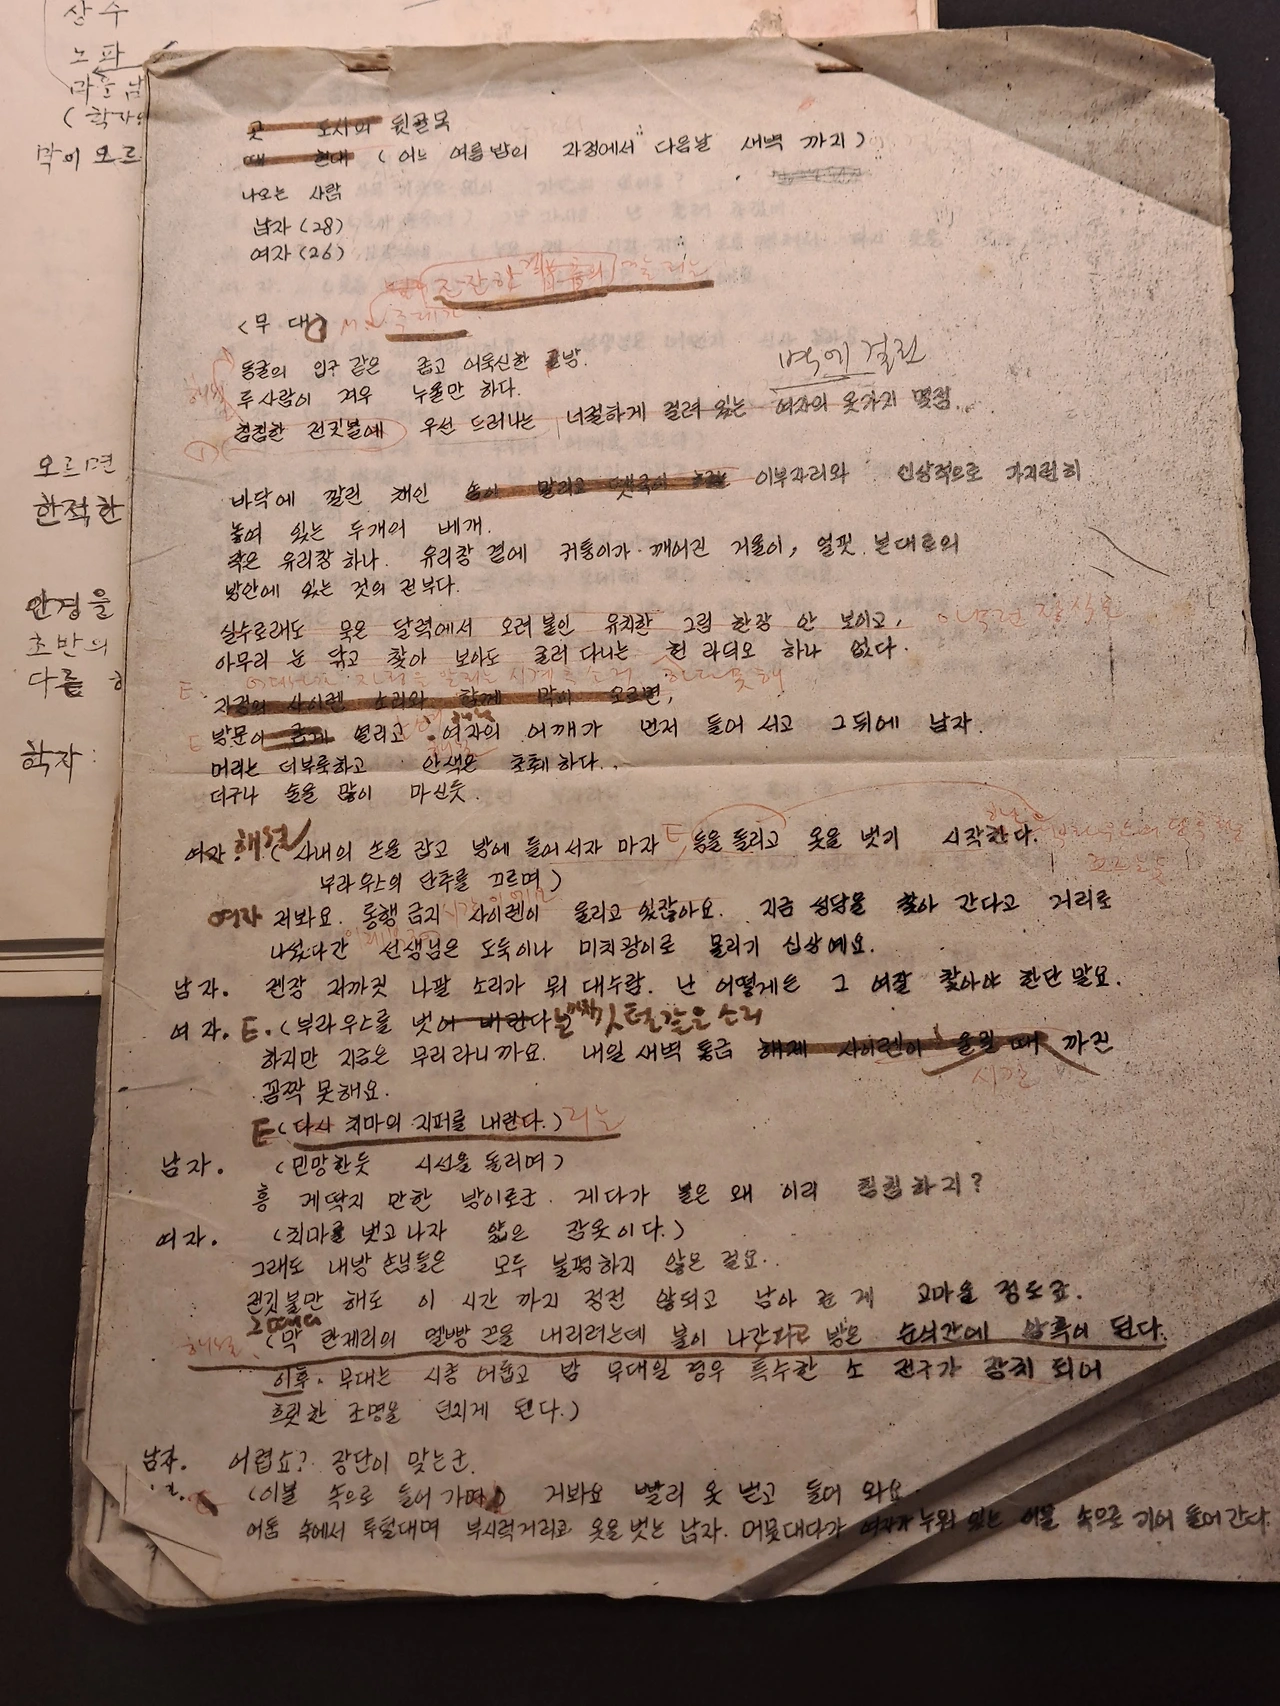 상수
노파
마을 남
(학자의
막이 오르
오르면
한적한
안경을
초반의
다른
학자:
곳 도시의 뒷골목
때 현대 (어느 여름밤의 자정에서 다음날 새벽 까지)
나오는 사람
남자 (28)
여자 (26)
잔잔한
<무대>
벽에 걸린
동굴의 입구 같은 좁고 어둑신한 방.
해설
두사람이 겨우 누울만 하다.
침침한 전깃불에 우선 드러나는 너절하게 걸려 있는 여자의 옷가지 몇점.
바닥에 깔린 채인 이부자리와 인상적으로 가지런히
놓여 있는 두개의 베개.
작은 유리장 하나. 유리장 곁에 귀퉁이가 깨어진 거울이, 얼핏 본대로의
방안에 있는 것의 전부다.
실수로래도 묵은 달력에서 오려 붙인 유치한 그림 한장 안 보이고,
아무리 눈 닦고 찾아 보아도 굴러 다니는 헌 라디오 하나 없다.
E. 자정의 사이렌 소리와 함께 막이 오르면,
E 방문이 열리고 여자의 어깨가 먼저 들어 서고 그뒤에 남자.
머리는 더부룩하고 안색은 초췌하다.
더구나 술을 많이 마신듯.
여자 해설 (사내의 손을 잡고 방에 들어서자 마자 E, 등을 돌리고 옷을 벗기 시작한다.
부라우스의 단추를 끄르며)
여자 저봐요. 통행 금지 사이렌이 울리고 있잖아요. 지금 성당을 찾아 간다고 거리로
나섰다간 선생님은 도둑이나 미치광이로 몰리기 십상예요.
남자. 젠장 저까짓 나팔 소리가 뭐 대수람. 난 어떻게든 그 여잘 찾아야 한단 말요.
여자. E. (부라우스를 벗어 내린다 깃털같은 소리
하지만 지금은 무리라니까요. 내일 새벽 통금 해제 사이렌이 울릴 때 까진
시간
꼼짝 못해요.
E (다시 치마의 지퍼를 내린다.)
남자. (민망한듯 시선을 돌리며)
흥 게딱지 만한 방이로군. 게다가 불은 왜 이리 침침하지?
여자. (치마를 벗고나자 얇은 잠옷이다.)
그래도 내방 손님들은 모두 불평하지 않은 걸요..
전깃불만 해도 이 시간 까지 정전 않되고 남아 준 게 고마울 정도죠.
그때다
해설 (막 란제리의 멜빵 끈을 내리려는데 불이 나간다 방은 순식간에 암흑이 된다.
이후. 무대는 시종 어둡고 밤 무대일 경우 특수한 소 전구가 장치 되어
흐릿한 조명을 던지게 된다.)
남자. 어렵쇼? 장단이 맞는군.
(이불 속으로 들어 가며) 거봐요 빨리 옷 벗고 들어 와요.
어둠 속에서 투덜대며 부시럭거리고 옷을 벗는 남자. 머뭇대다가 여자가 누워 있는 이불 속으로 기어 들어간다.